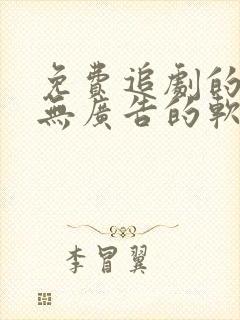 免費追劇的
無廣告的軟
李冒翼